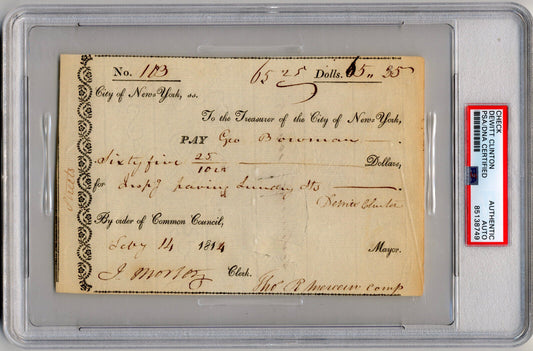 No. 103 65 25 Dolls. 65,, 35
City of New-York, ss.
To the Treasurer of the City of New-York,
PAY Geo Bowman
Sixty five 25/100 Dollars,
for Inspg paving Sunday Sts
DeWitt Clinton
By order of Common Council,
Feby 14 1814 Mayor.
J. Morton Clerk. Thos R Mercein Comp
Streets
CHECK
DEWITT CLINTON
PSA/DNA CERTIFIED
AUTHENTIC
AUTO
85138749
PSA